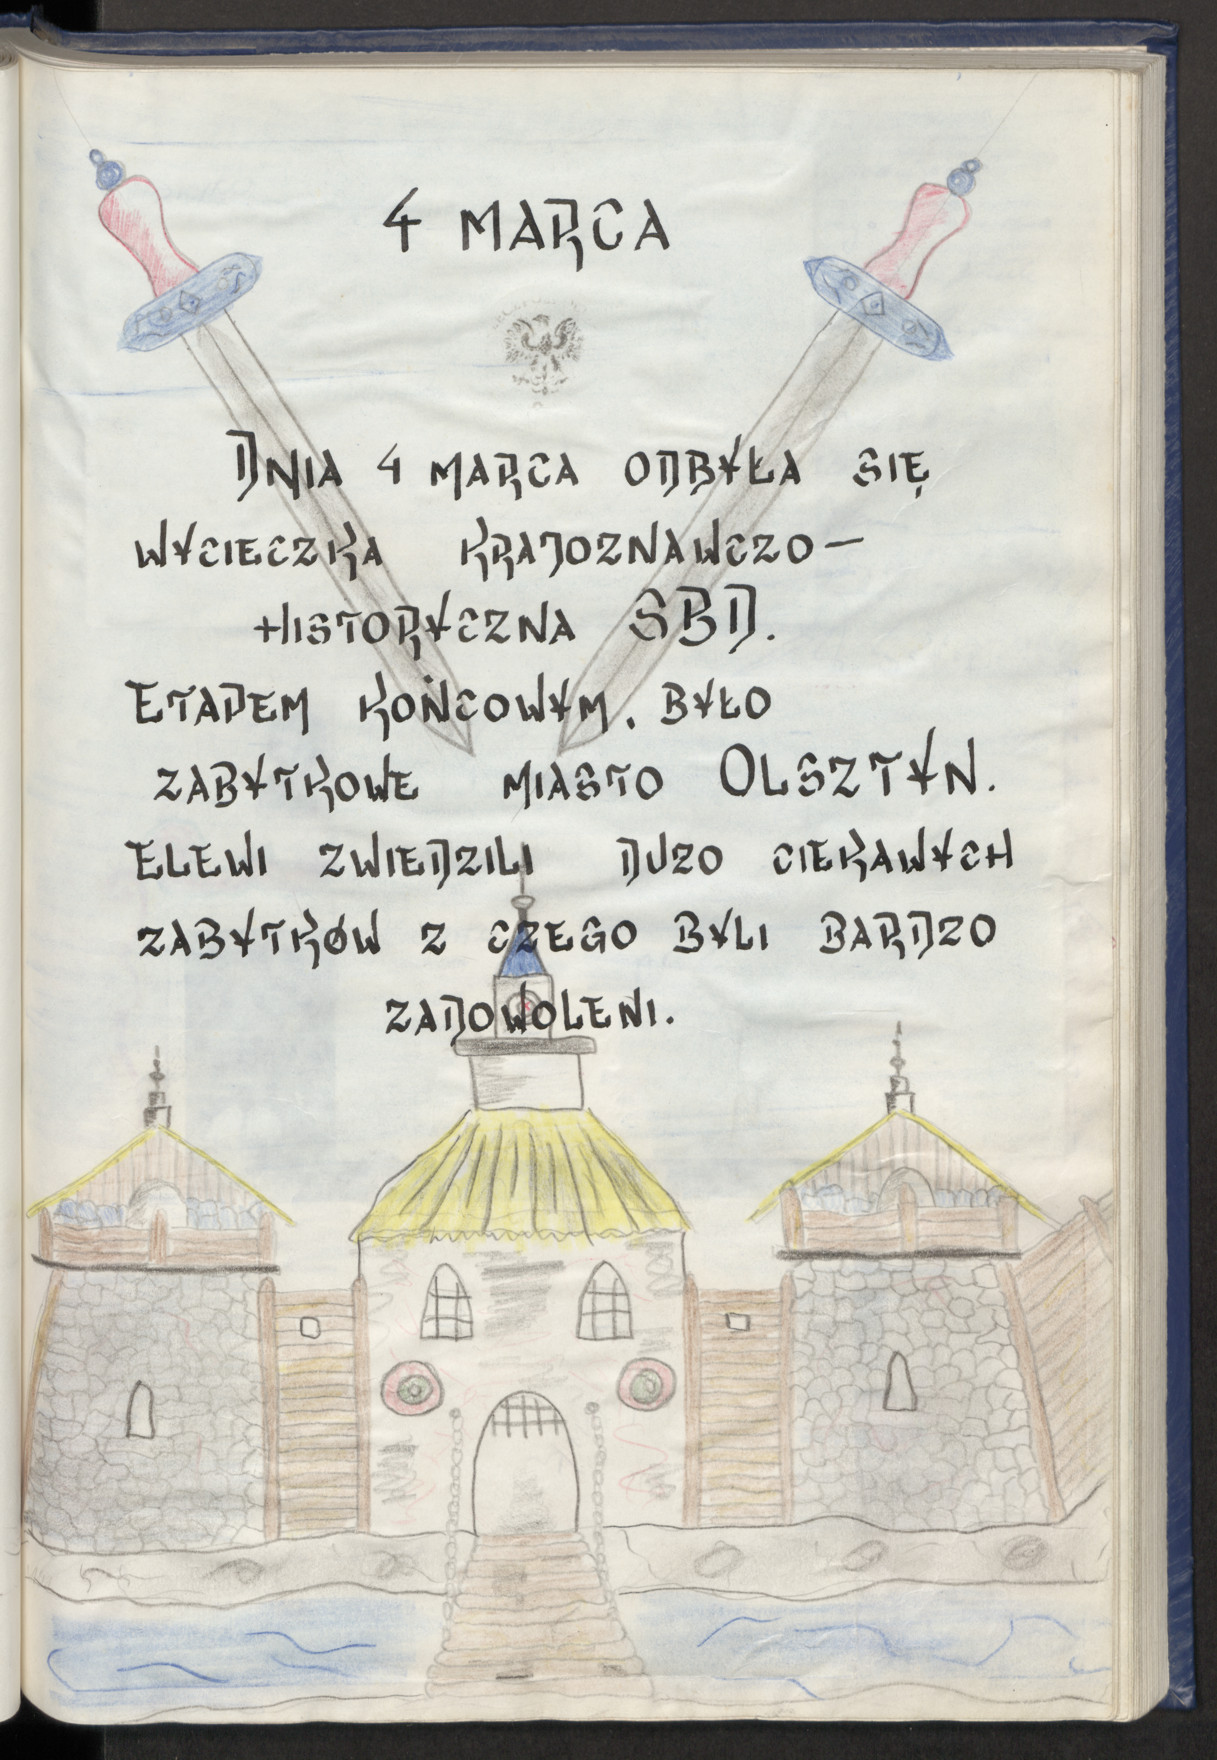 4 MARCA
DNIA 4 MARCA ODBYŁA SIĘ
WYCIECZKA KRAJOZNAWCZO-
HISTORYCZNA SBD.
ETAPEM KOŃCOWYM, BYŁO
ZABYTKOWE MIASTO OLSZTYN.
ELEWI ZWIEDZILI DUZO CIEKAWYCH
ZABYTKÓW Z CZEGO BYLI BARDZO
ZADOWOLENI.